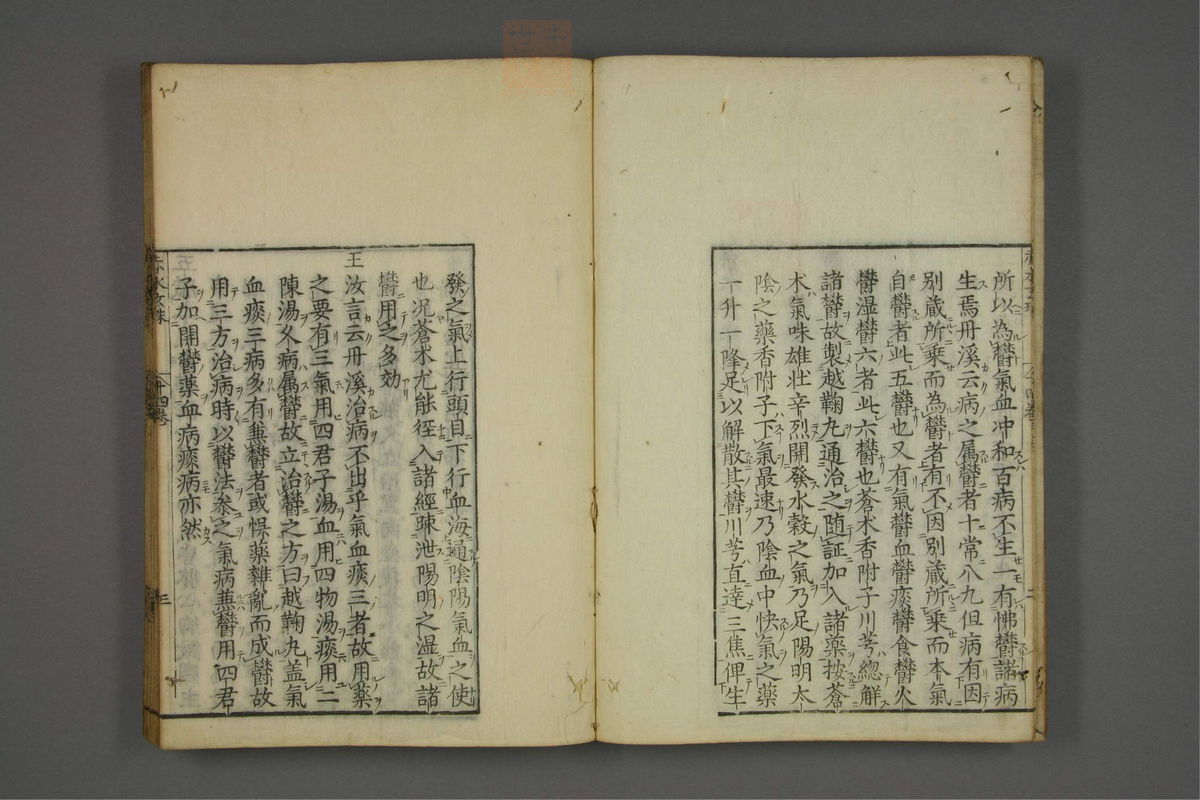 所以為欝氣血冲和百病不生一有怫欝諸病
生焉丹溪云病之属欝者十常八九但病有因
別蔵所乗而為欝者有不因別蔵所乗而本氣
自欝者此五欝也又有氣欝血欝痰欝食欝火
欝湿欝六者此六欝也蒼木香附子川芎總解
諸欝故製越鞠丸通治之随証加入諸藥按蒼
木氣味雄壮辛烈開發水穀之氣乃足陽明太
陰之藥香附子下氣最速乃陰血中快氣之藥
一升一降足以解散其欝川芎直達三焦俾生
發之氣上行頭目下行血海通陰陽氣血之使
也况蒼木尤能径入諸經踈泄陽明之湿故諸
欝用之多効
王
汝言云丹溪治病不出乎氣血痰三者故用藥
之要有三氣用四君子湯血用四物湯痰用二
陳湯久病属欝故立治欝之方曰越鞠丸盖氣
血痰三病多有兼欝者或悮藥雜亂而成欝故
用三方治病時以欝法參之氣病兼欝用四君
子加開欝藥血病痰病亦然
赤水玄珠
十四卷
三